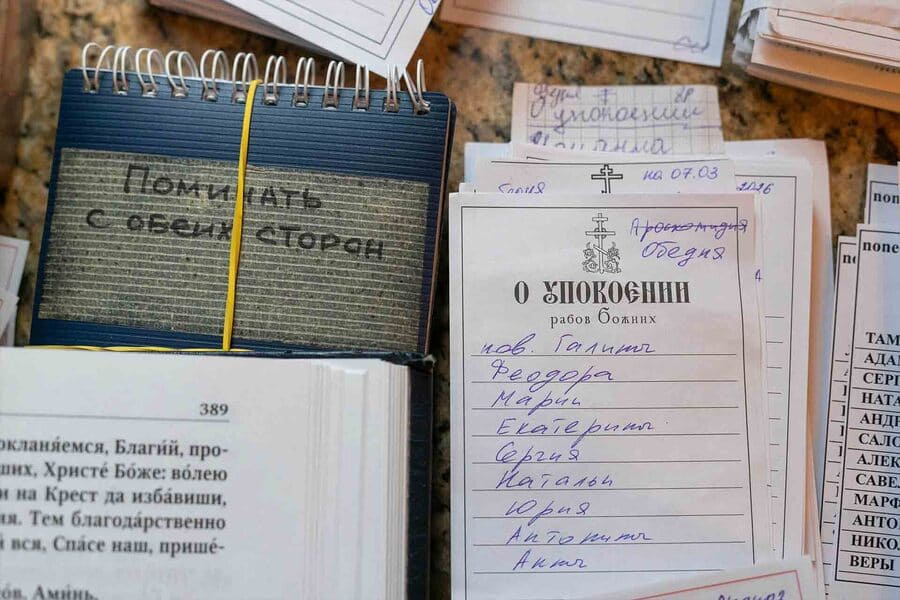 Поминать
с обеих сторон
389
окланя́емся, Благи́й, про-
ших, Христе́ Бо́же: во́лею
и на Крест да изба́виши,
ия. Тем благода́рственно
й вся, Спа́се наш, прише́-
о́в. Ами́нь.
О упокоении
на 07.03
2026
Проскомидия
Обедня
О УПОКОЕНИИ
рабов Божних
нов. Галины
Феодора
Марии
Екатерины
Сергия
Натальи
Юрия
Антонины
Анны
поне
поне
ТАМ
АДАМ
СЕРГ
НАТА
АНДР
САЛО
АЛЕК
САВЕЛ
МАРФ
АНТО
НИКОЛ
ВЕРЫ